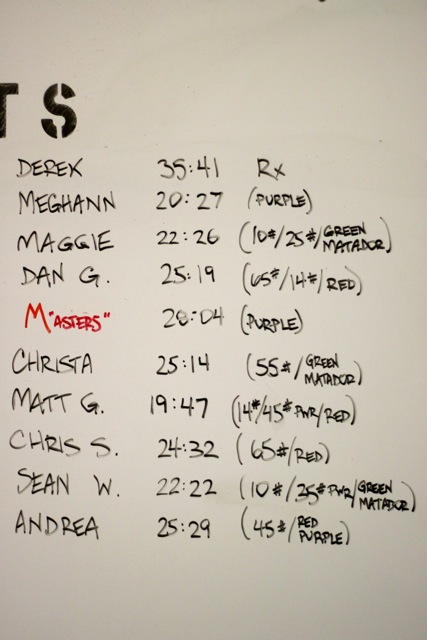 TS
DEREK 35:41 Rx
MEGHANN 20:27 (PURPLE)
MAGGIE 22:26 (10#/25#/GREEN MATADOR)
DAN G. 25:19 (65#/14#/RED)
M"ASTERS" 20:04 (PURPLE)
CHRISTA 25:14 (55#/GREEN MATADOR)
MATT G. 19:47 (14#/45# PWR/RED)
CHRIS S. 24:32 (65#/RED)
SEAN W. 22:22 (10#/35# PWR/GREEN MATADOR)
ANDREA 25:29 (45#/RED PURPLE)